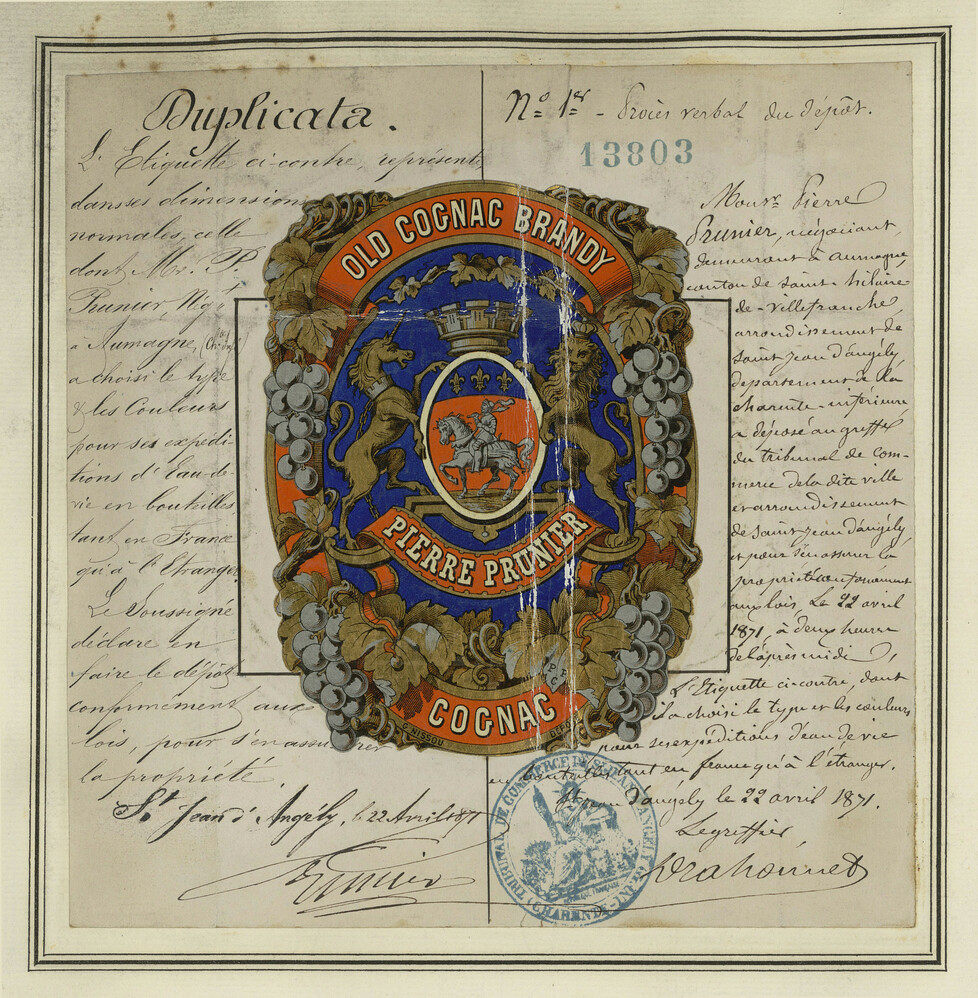 Duplicata.
L'Etiquette ci-contre, représente
dans ses dimensions
normales, celle
dont Mr. P.
Prunier, Négt
à Aumagne, (Chte Infre)
a choisi le type
& les Couleurs
pour ses expédi-
tions d'Eau-de-
vie en bouteilles
tant en France
qu'à l'Etranger.
Le Soussigné
déclare en
faire le dépôt
conformément aux
lois, pour s'en assurer
la propriété
St Jean d'Angély, le 22 Avril 1871
Prunier
No 1er - Procès verbal du dépôt.
13803
Monsr Pierre
Prunier, négociant,
demeurant à aumagne,
canton de saint-hilaire
de-villefranche,
arrondissement de
saint jean d'angély,
département de la
charente-inférieure
a déposé au greffe
du tribunal de com-
merce de la dite ville
et arrondissement
de saint jean d'angély
et pour s'en assurer la
propriété conformément
aux lois, Le 22 avril
1871, à deux heures
de l'après midi,
L'Etiquette ci-contre, dont
il a choisi le type et les couleurs
pour ses expéditions d'eau de vie
en bouteilles tant en france qu'à l'étranger.
St jean d'angély le 22 avril 1871.
Le greffier
OLD COGNAC BRANDY
PIERRE PRUNIER
COGNAC
NISSOU
DÉPOSÉ
TRIBUNAL DE COMMERCE DE St JEAN D'ANGELY
(CHARENTE-INF